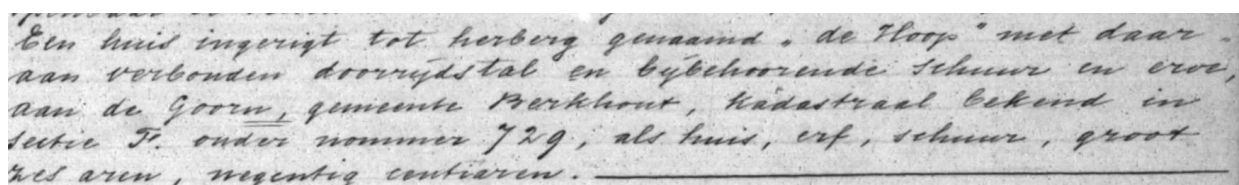 Een huis ingerigt tot herberg genaamd „de Hoop" met daar-
aan verbonden doorrijdstal en bijbehoorende schuur en erve,
aan de Goorn, gemeente Berkhout, kadastraal bekend in
sectie F. onder nommer 729, als huis, erf, schuur, groot
zes aren, negentig centiaren.